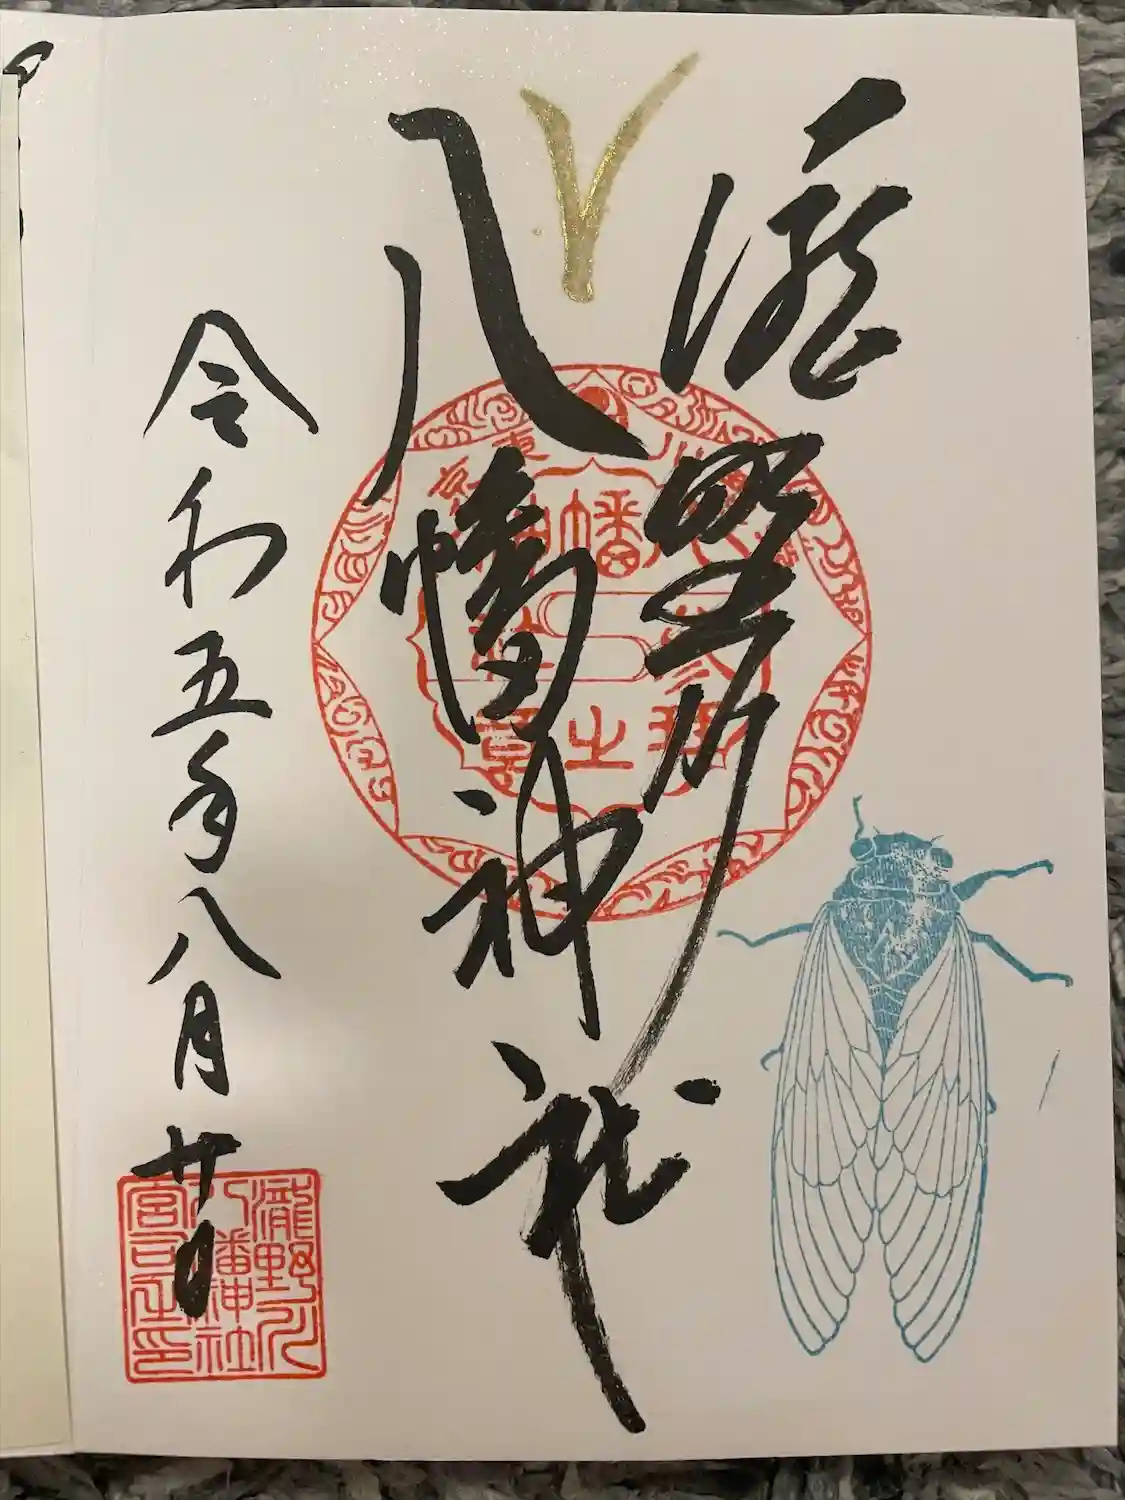 滝野川
八幡神社
令和五年八月廿日
瀧野川
八幡神社
宮司之印